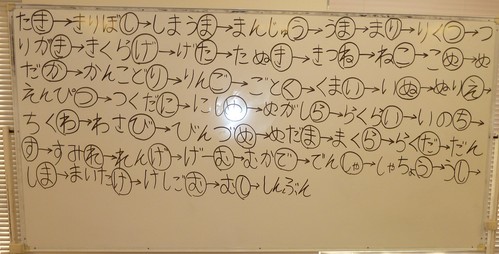 たき→きりぼし→しまうま→まんじゅう→うま→まり→りくつ→つ
りがき→きくらげ→げた→たぬき→きつね→ねこ→こめ→め
だか→かんことり→りんご→ごとく→くまい→いぬ→ぬりえ→
えんぴつ→つくだに→にしめ→めがしら→らくらい→いのち→
ちくわ→わさび→びんづめ→めだま→まくら→らくだ→だん
す→すみれ→れんげ→げーむ→むかで→でんしゃ→しゃちょう→うし→
しま→まいたけ→けしごむ→むし→しんぶん